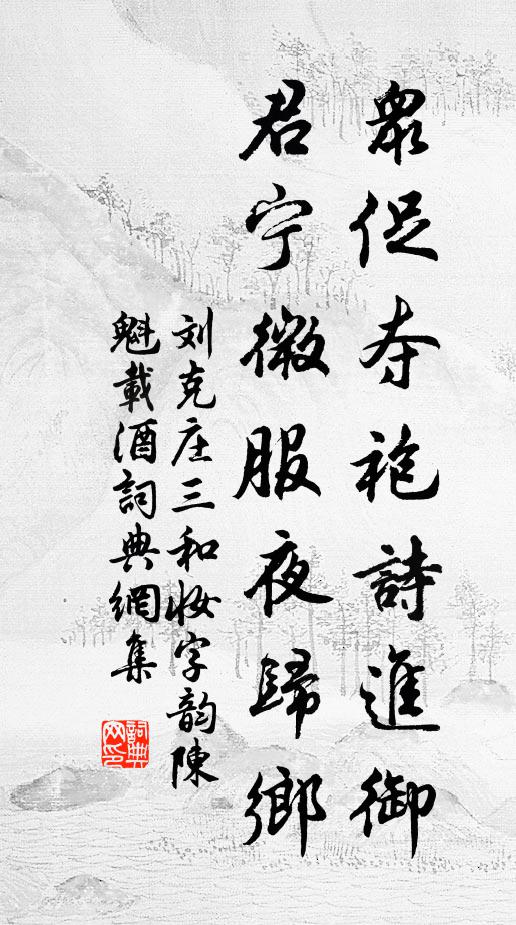 眾促夺袍詩進御
君宁微服夜歸鄉
刘克庄三和妆字韵陳
魁載酒詞典網集
詞典
网印